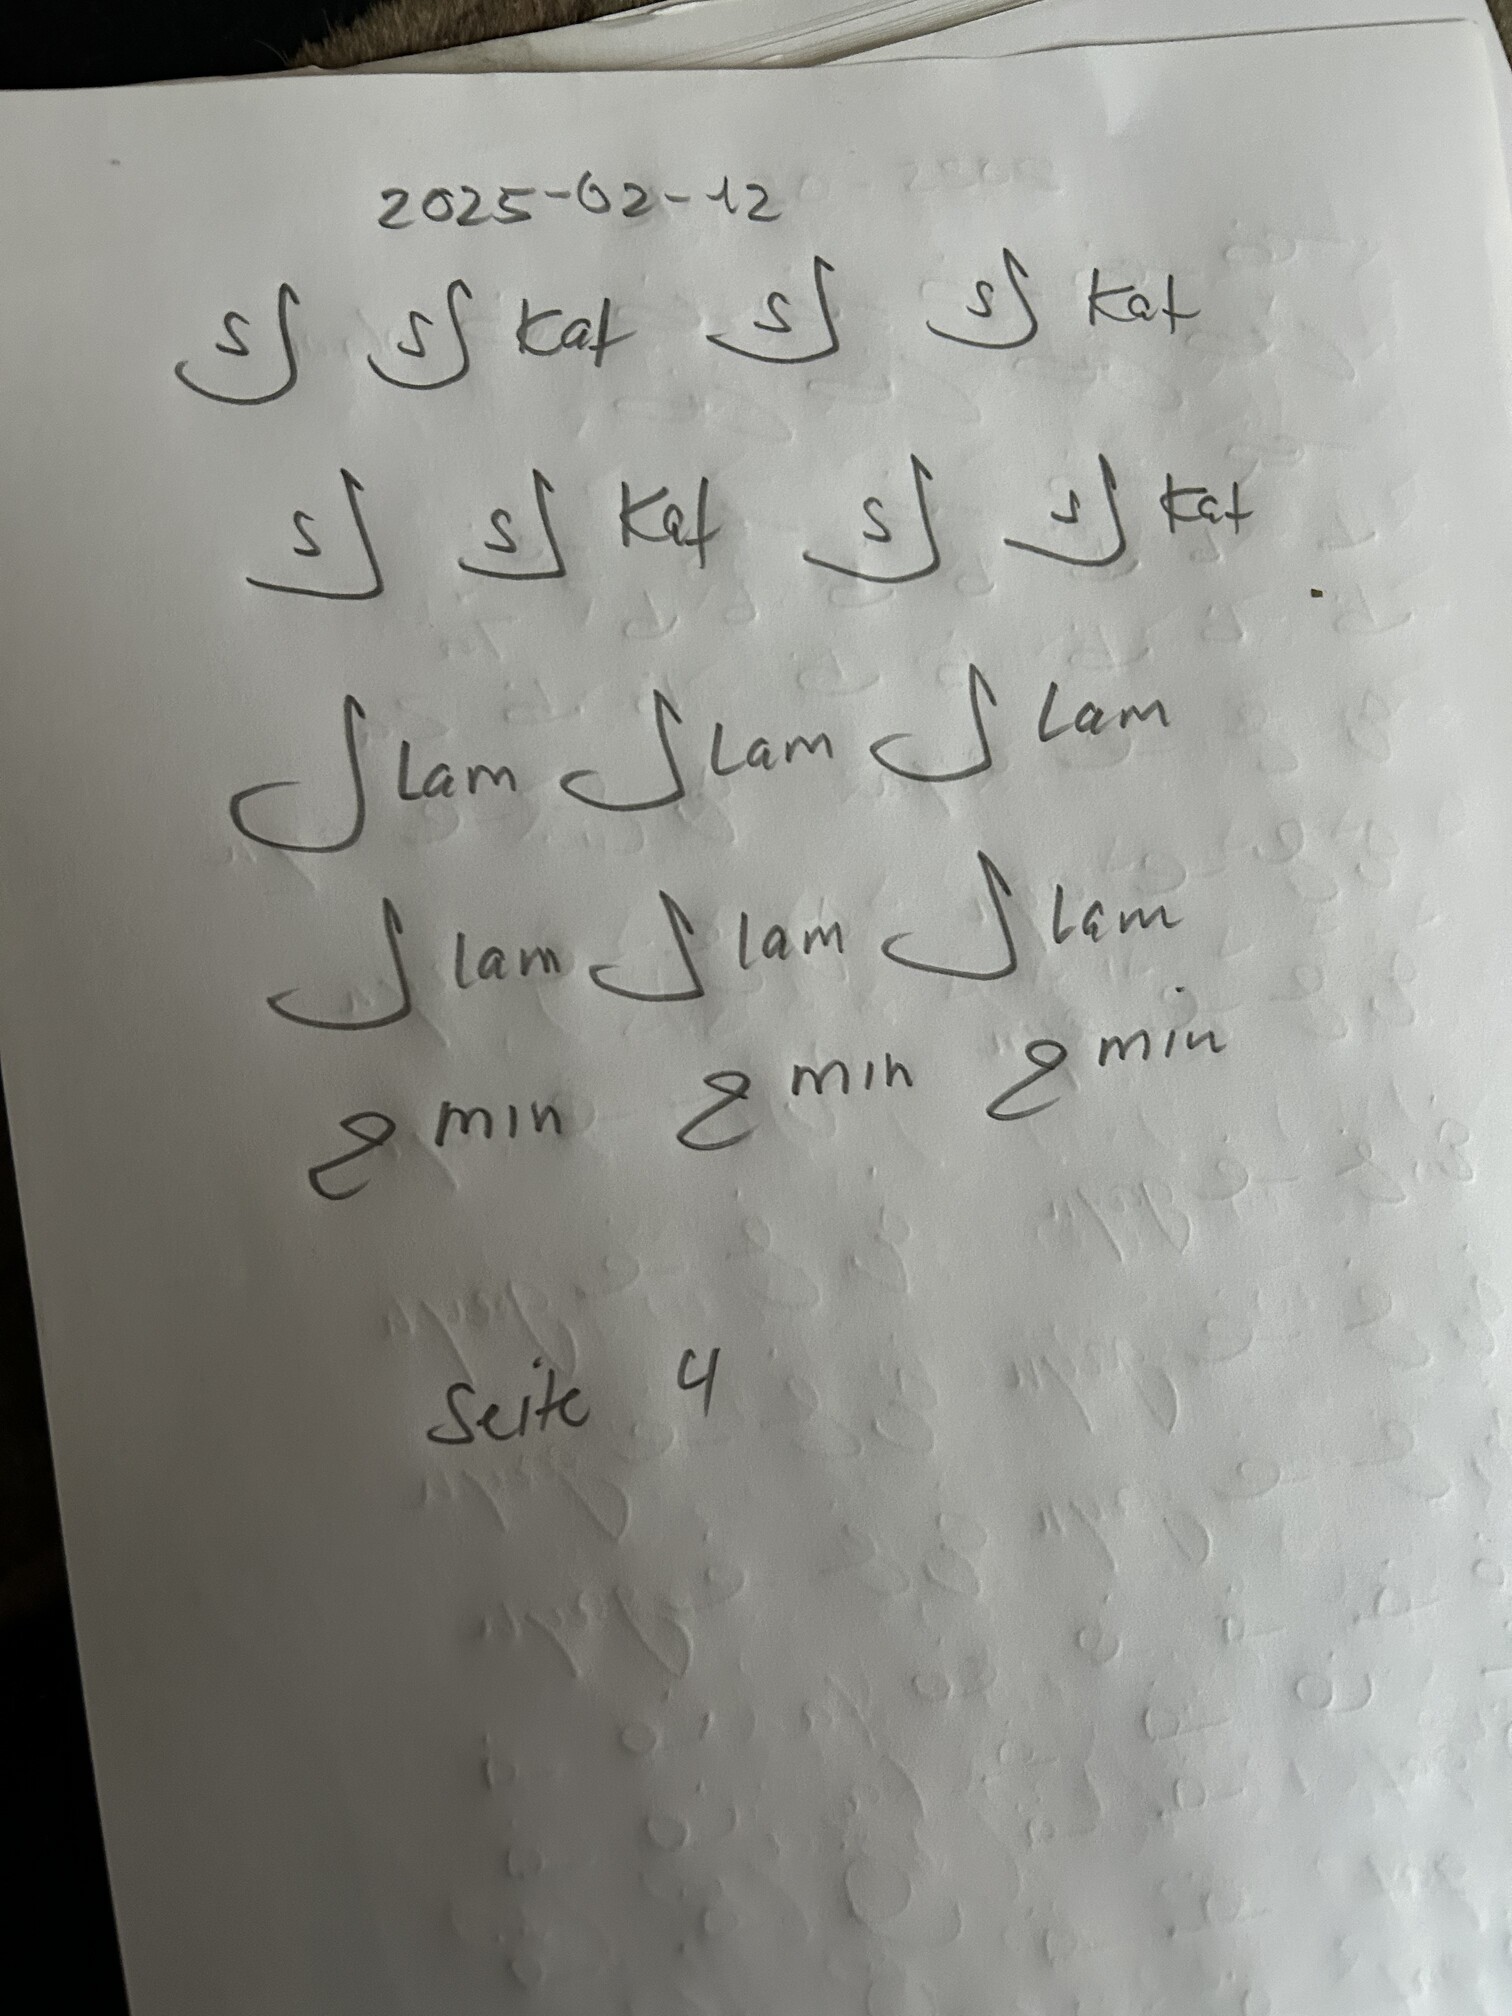 2025-02-12
ك ك kaf ك ك kaf
ك ك kaf ك ك kaf
ل Lam ل Lam ل Lam
ل lam ل lam ل lam
min min min
Seite 4